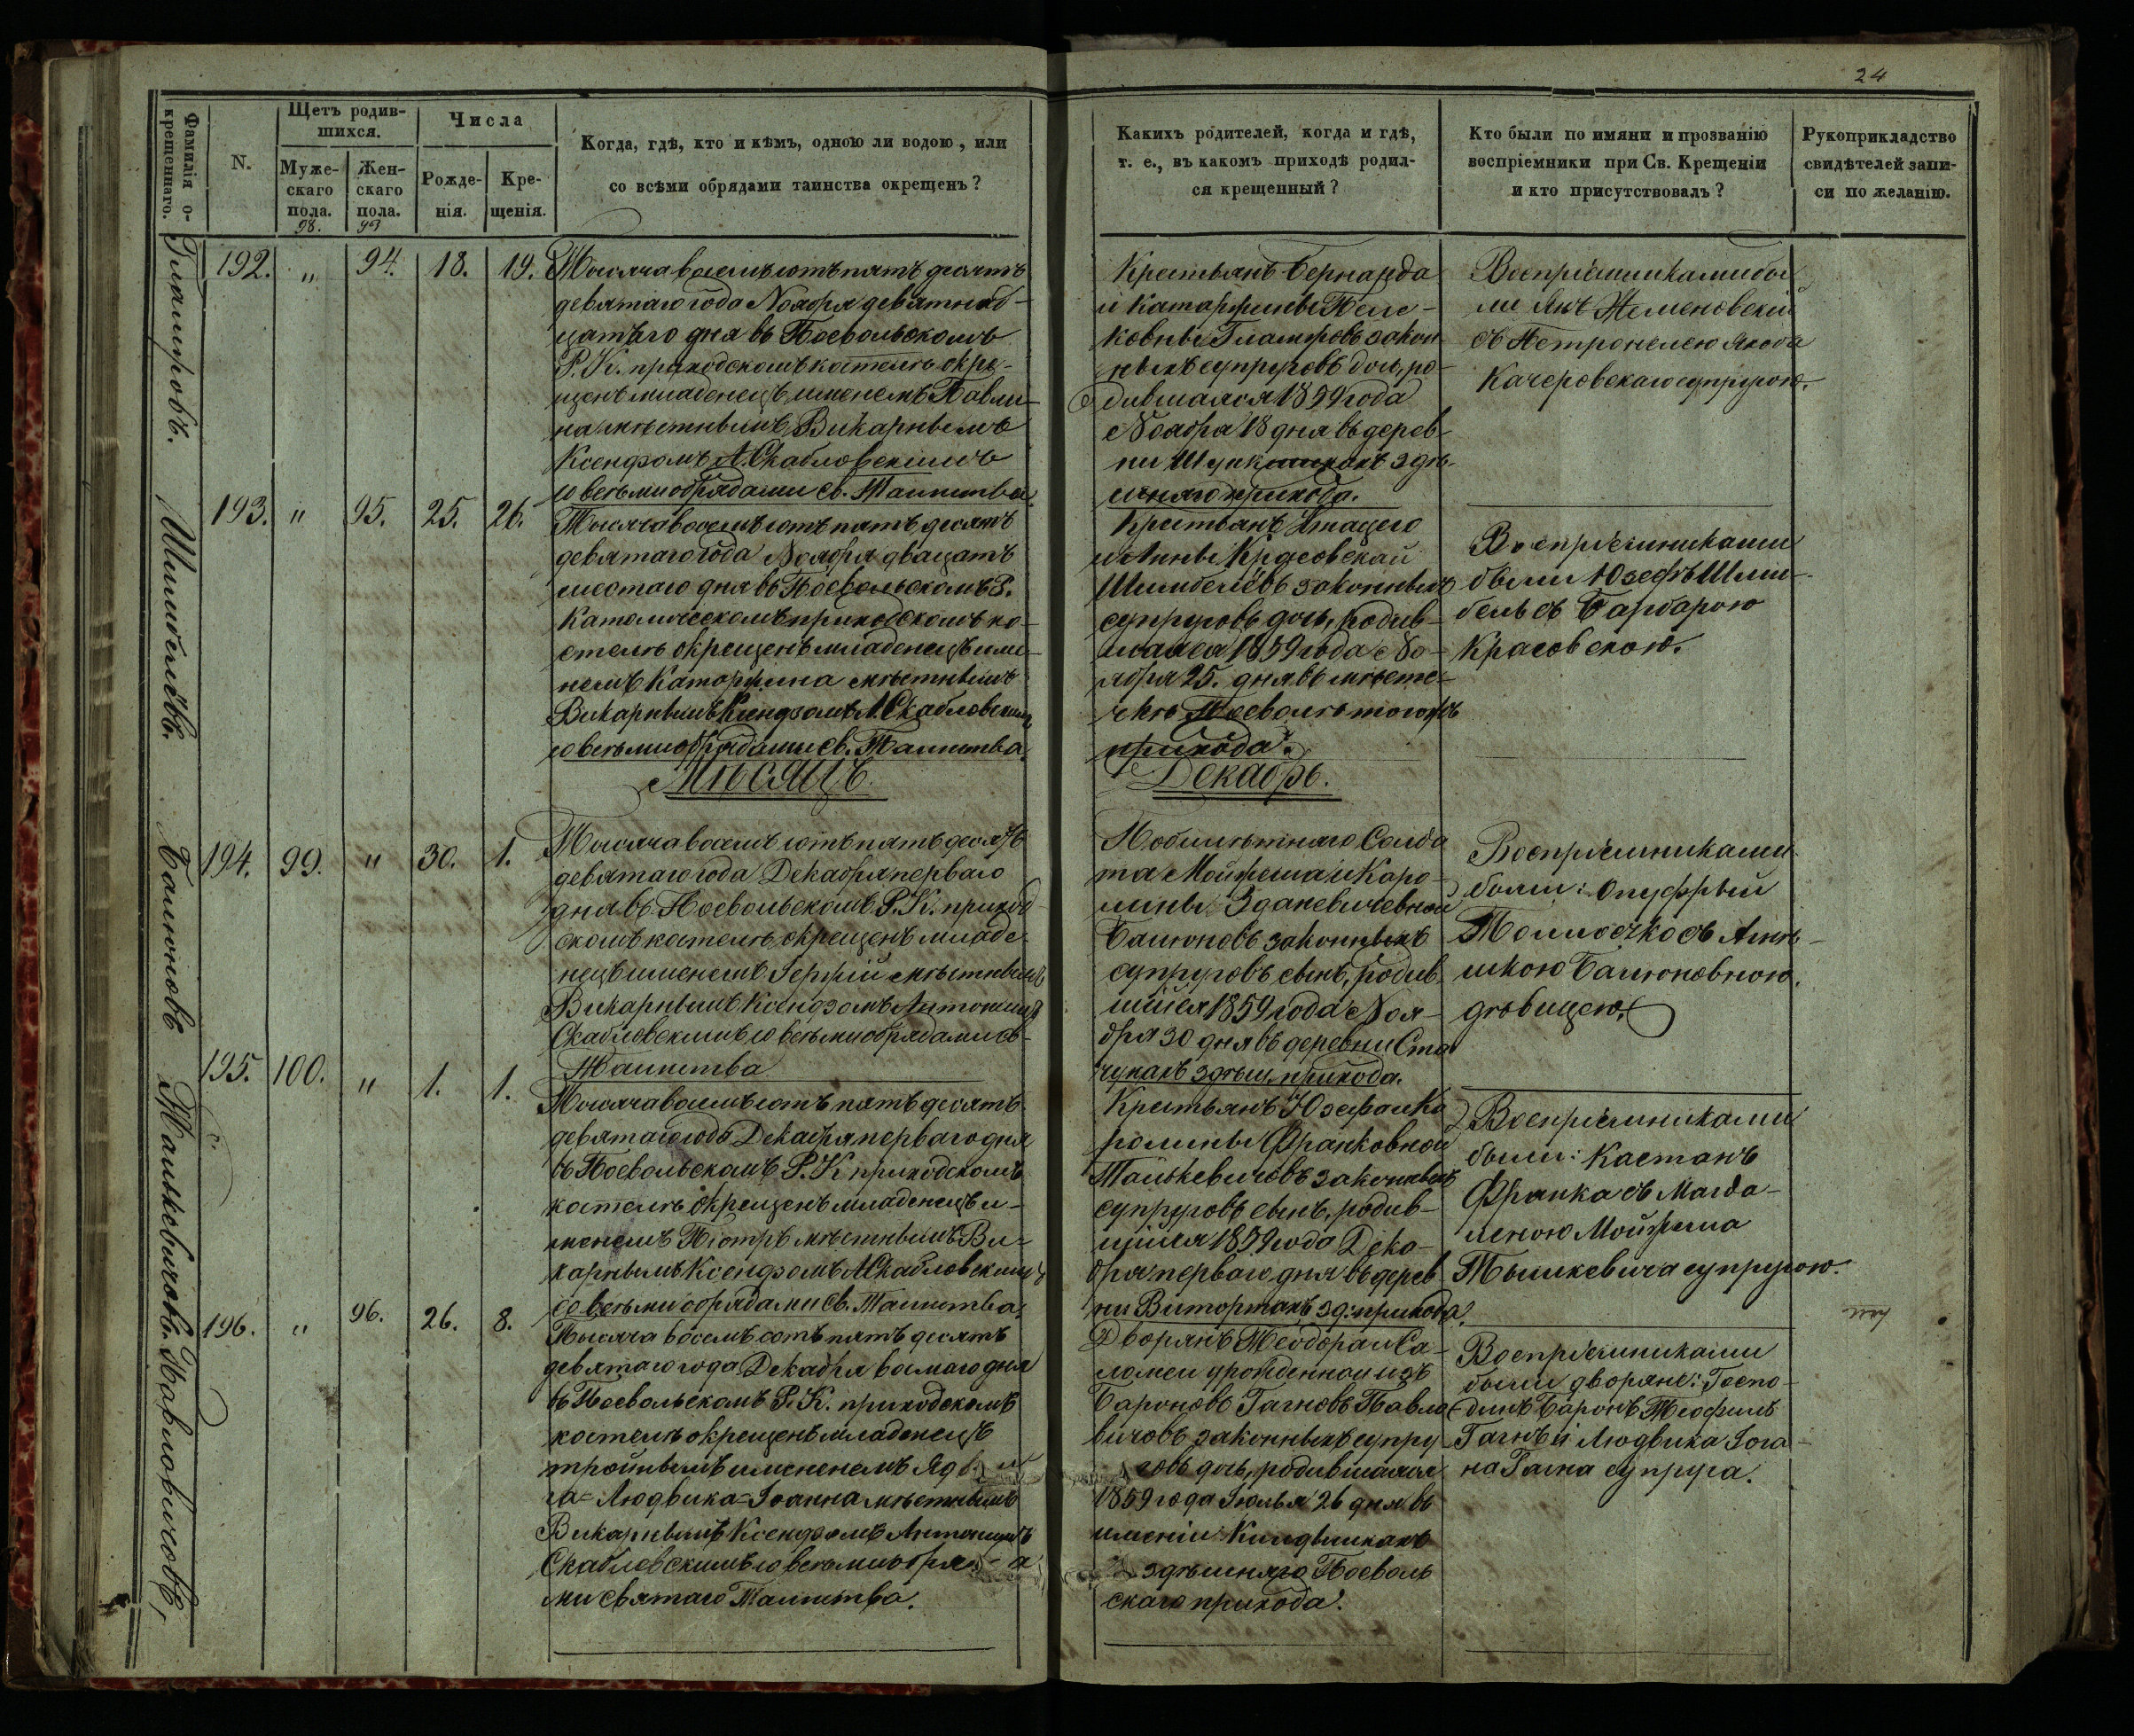 24
Фамилія о-
крещеннаго.
N.
Щетъ родив-
шихся.
Муже-
скаго
пола.
98.
Жен-
скаго
пола.
93
Числа
Рожде-
нія.
Кре-
щенія.
Когда, гдѣ, кто и кѣмъ, одною ли водою, или
со всѣми обрядами таинства окрещенъ?
Какихъ родителей, когда и гдѣ,
т. е., въ какомъ приходѣ родил-
ся крещенный?
Кто были по имяни и прозванію
воспріемники при Св. Крещеніи
и кто присутствовалъ?
Рукоприкладство
свидѣтелей запи-
си по желанію.
192. " 94. 18. 19.
Тысяча восемь сотъ пятъ десятъ
девятаго года Ноября девятнад-
цатаго дня въ Посвольскомъ
Р. К. приходскомъ костелѣ окре-
щенъ младенецъ именемъ Павли-
на мѣстнымъ Викарнымъ
Ксендзомъ А. Скабловскимъ
со всѣми обрядами Св. Таинства.
Крестьянъ Бернарда
и Катаржины
законныхъ супруговъ дочь, ро-
дившаяся 1859 года
Ноября 18 дня въ дерев-
ни здѣ-
шняго прихода.
Воспріемниками бы
ли Янъ
съ Петронелею Якова
Качеровскаго супругою.
193. " 95. 25. 26.
Шимбелёвъ.
Тысяча восемь сотъ пятъ десятъ
девятаго года Ноября двацатъ
шестаго дня въ Посвольскомъ Р.
Католическомъ приходскомъ ко-
стелѣ окрещенъ младенецъ име-
немъ Катаржина мѣстнымъ
Викарнымъ Ксендзомъ А. Скабловским
со всѣми обрядами Св. Таинства.
Крестьянъ Игнацего
и Анны Красовской
Шимбелёвъ законныхъ
супруговъ дочь, родив-
шаяся 1859 года Но-
ября 25. дня въ мѣсте-
чкѣ Посволѣ тогожъ
прихода.
Воспріемниками
были Юзефъ Шим-
бель съ Барбарою
Красовскою.
Мѣсяцъ
Декабрь.
194. 99. " 30. 1.
Балюновъ
Тысяча восемь сотъ пятъ десятъ
девятаго года Декабря перваго
дня въ Посвольскомъ Р. К. приход
скомъ костелѣ окрещенъ младе-
нецъ именемъ мѣстнымъ
Викарнымъ Ксендзомъ Антонимъ
Скабловскимъ со всѣми обрядами Св-
Таинства
Солда
та Мойжеша и Каро-
лины Зданевичевной
Балюновъ законныхъ
супруговъ сынъ, родив-
шійся 1859 года Ноя-
бря 30 дня въ деревни Ста
чунахъ здѣш. прихода.
Воспріемниками
были: Онуфрый
съ Агнѣ-
шкою Балюновною.
дѣвицею.
195. 100. " 1. 1.
Талькевичовъ.
Тысяча восемь сотъ пятъ десятъ
девятаго года Декабря перваго дня
въ Посвольскомъ Р. К приходскомъ
костелѣ окрещенъ младенецъ и-
менемъ Піотръ мѣстнымъ Ви-
карнымъ Ксендзомъ А Скабловскимъ
со всѣми обрядами Св. Таинства.
Крестьянъ Юзефа и Ка
ролины Франковной
Талькевичовъ законныхъ
супруговъ сынъ, родив-
шійся 1859 года Дека-
бря перваго дня въ дерев
ни зд: прихода.
Воспріемниками
были: Каетанъ
Франка съ Магда-
леною Мойжеша
Тышкевича супругою.
196. " 96. 26. 8.
Павловичовъ,
Тысяча восемь сотъ пятъ десятъ
девятаго года Декабря восмаго дня
въ Посвольскомъ Р. К. приходскомъ
костелѣ окрещенъ младенецъ
тройнымъ имененемъ
га=Людвика=Іоанна мѣстнымъ
Викарнымъ Ксендзомъ Антонимъ
Скабловскимъ со всѣми обря
ми Святаго Таинства.
Дворянъ Теодора и Са-
ломеи урожденной изъ
Бароновъ Гагновъ Павло
вичовъ законныхъ супру
говъ дочь, родившаяся
1859 года Іюлья 26 дня въ
имѣніи
здѣшняго Посволь
скаго прихода.
Воспріемниками
были дворяне: Госпо-
динъ Баронъ Теофилъ
Гагнъ и Людвика Іога-
на Гагна супруга.